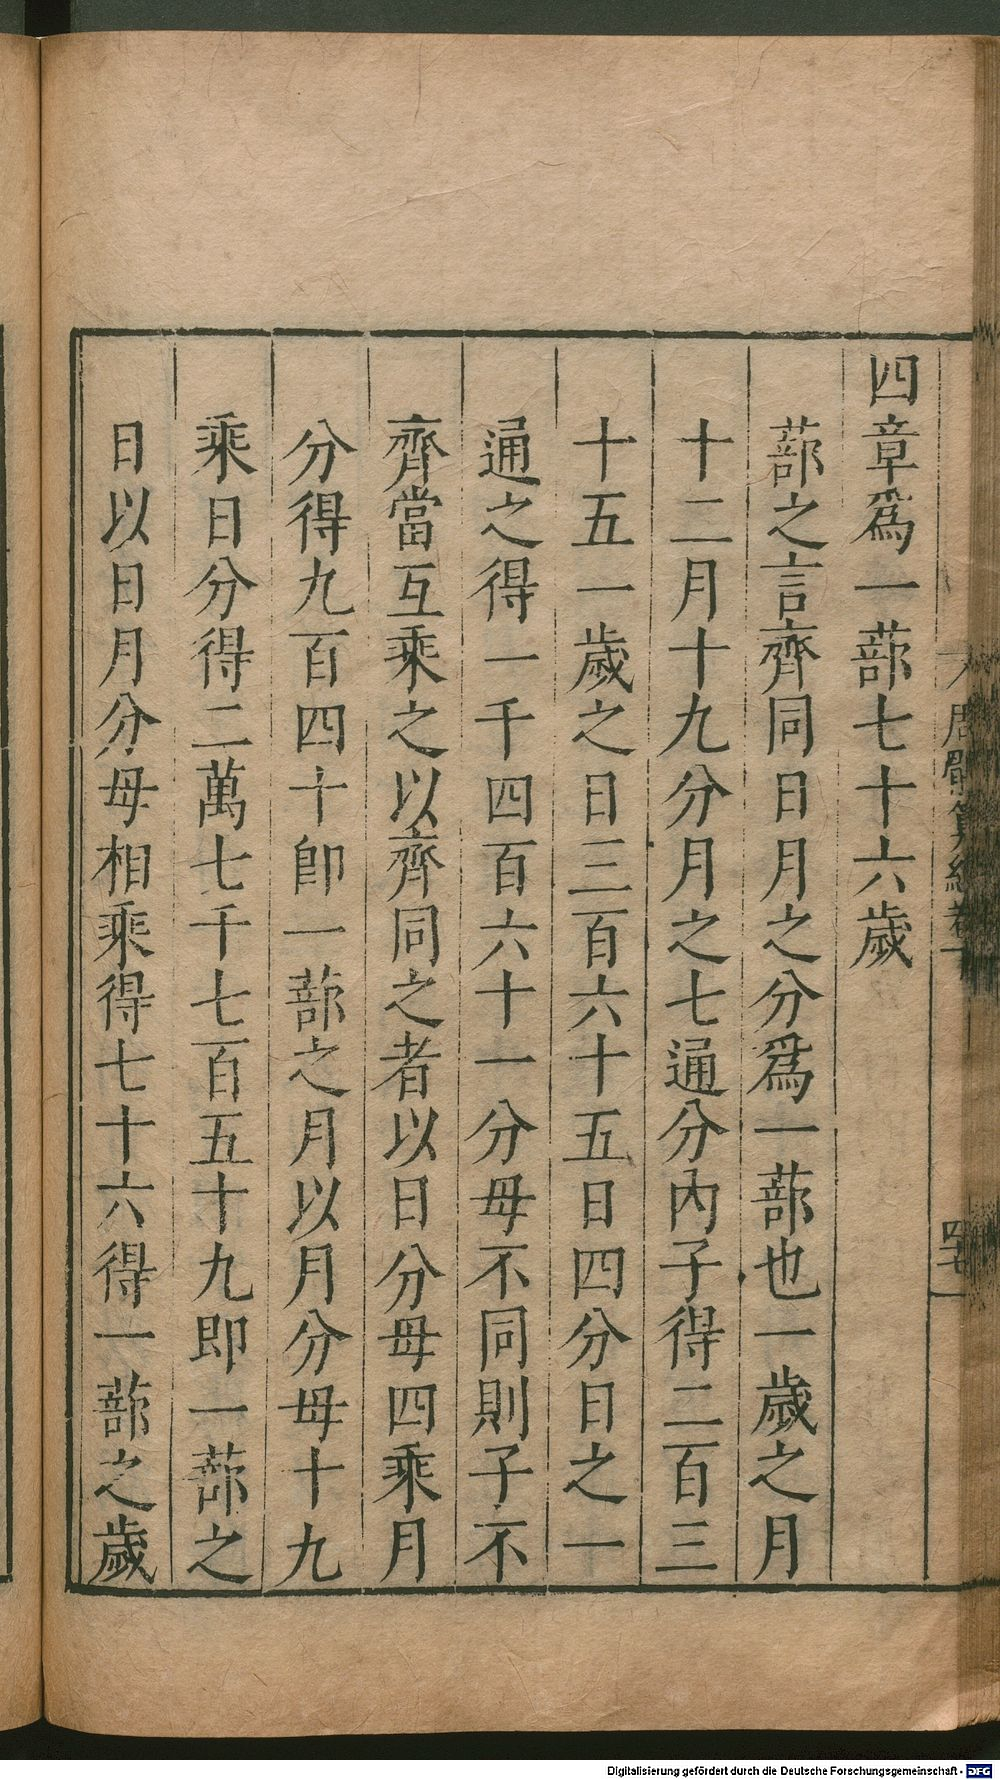 四章爲一蔀七十六歲
蔀之言齊同日月之分爲一蔀也一歲之月
十二月十九分月之七通分內子得二百三
十五一歲之日三百六十五日四分日之一
通之得一千四百六十一分母不同則子不
齊當互乘之以齊同之者以日分母四乘月
分得九百四十卽一蔀之月以月分母十九
乘日分得二萬七千七百五十九即一蔀之
日以日月分母相乘得七十六得一蔀之歲
周髀算經卷下
四七
Digitalisierung gefördert durch die Deutsche Forschungsgemeinschaft - DFG